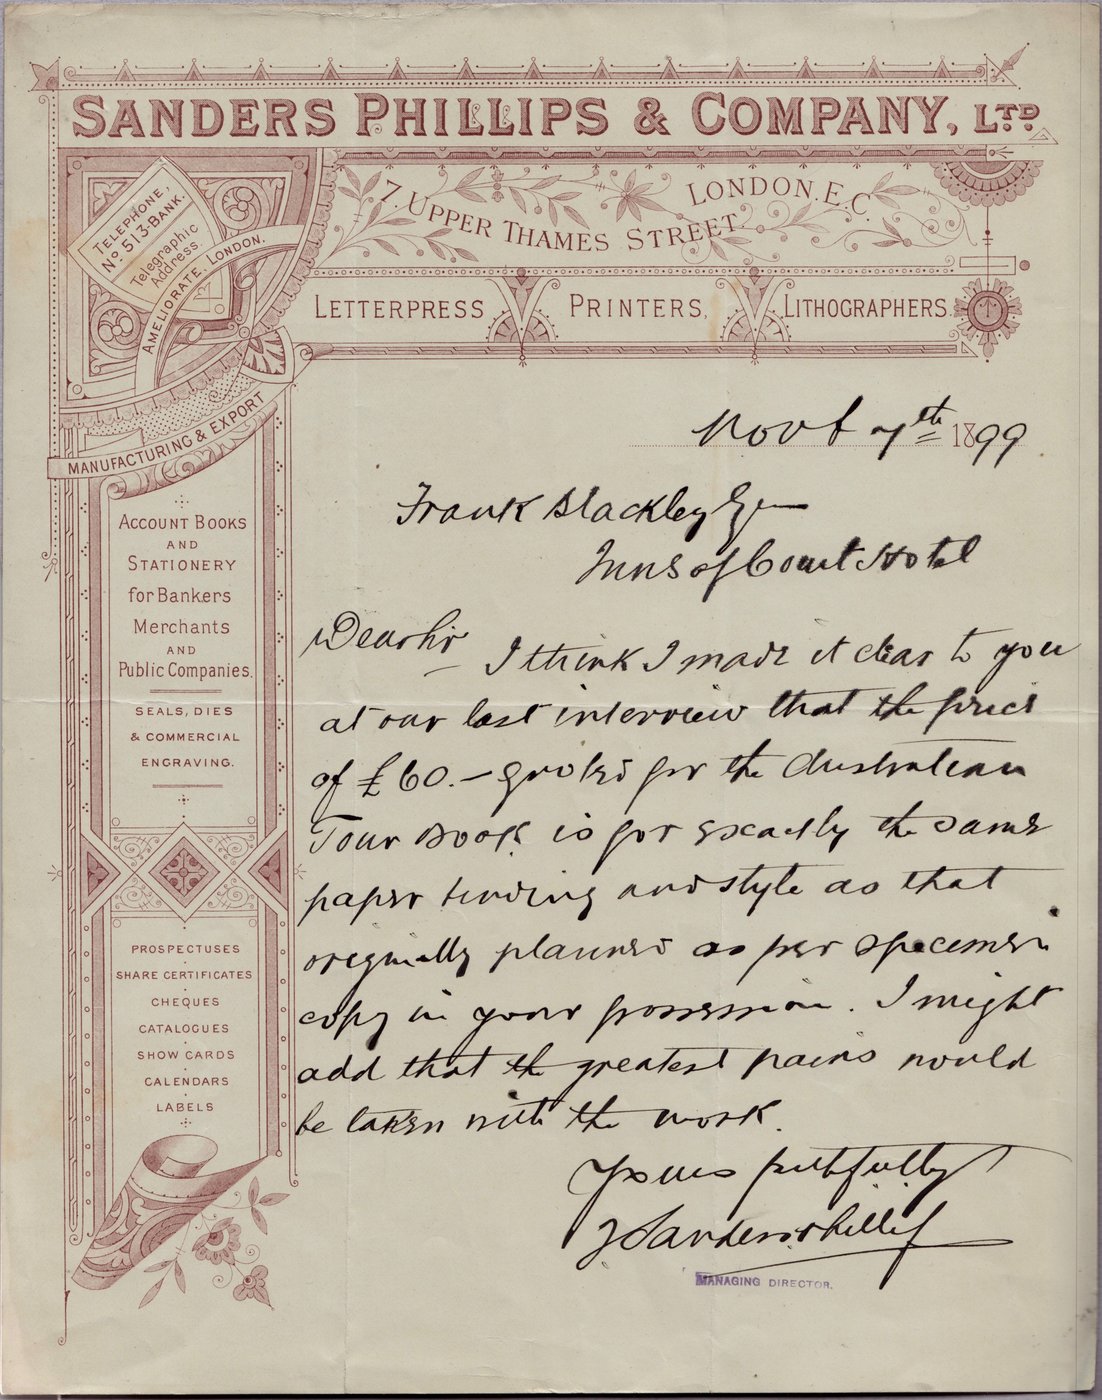 SANDERS PHILLIPS & COMPANY, LTD
TELEPHONE,
No. 513-BANK.
Telegraphic
Address.
AMELIORATE, LONDON.
7. UPPER THAMES STREET. LONDON. E.C.
LETTERPRESS PRINTERS, LITHOGRAPHERS.
MANUFACTURING & EXPORT
ACCOUNT BOOKS
AND
STATIONERY
for Bankers
Merchants
AND
Public Companies.
SEALS, DIES
& COMMERCIAL
ENGRAVING.
PROSPECTUSES
SHARE CERTIFICATES
CHEQUES
CATALOGUES
SHOW CARDS
CALENDARS
LABELS
Novr 7th 1899
Frank Blackley Esq
Inns of Court Hotel
Dear Sir
I think I made it clear to you
at our last interview that the price
of £60.— quoted for the Australian
Tour Book is for exactly the same
paper binding and style as that
originally planned as per specimen
copy in your possession. I might
add that the greatest pains would
be taken with the work.
Yours faithfully
Sanders Phillips
MANAGING DIRECTOR.